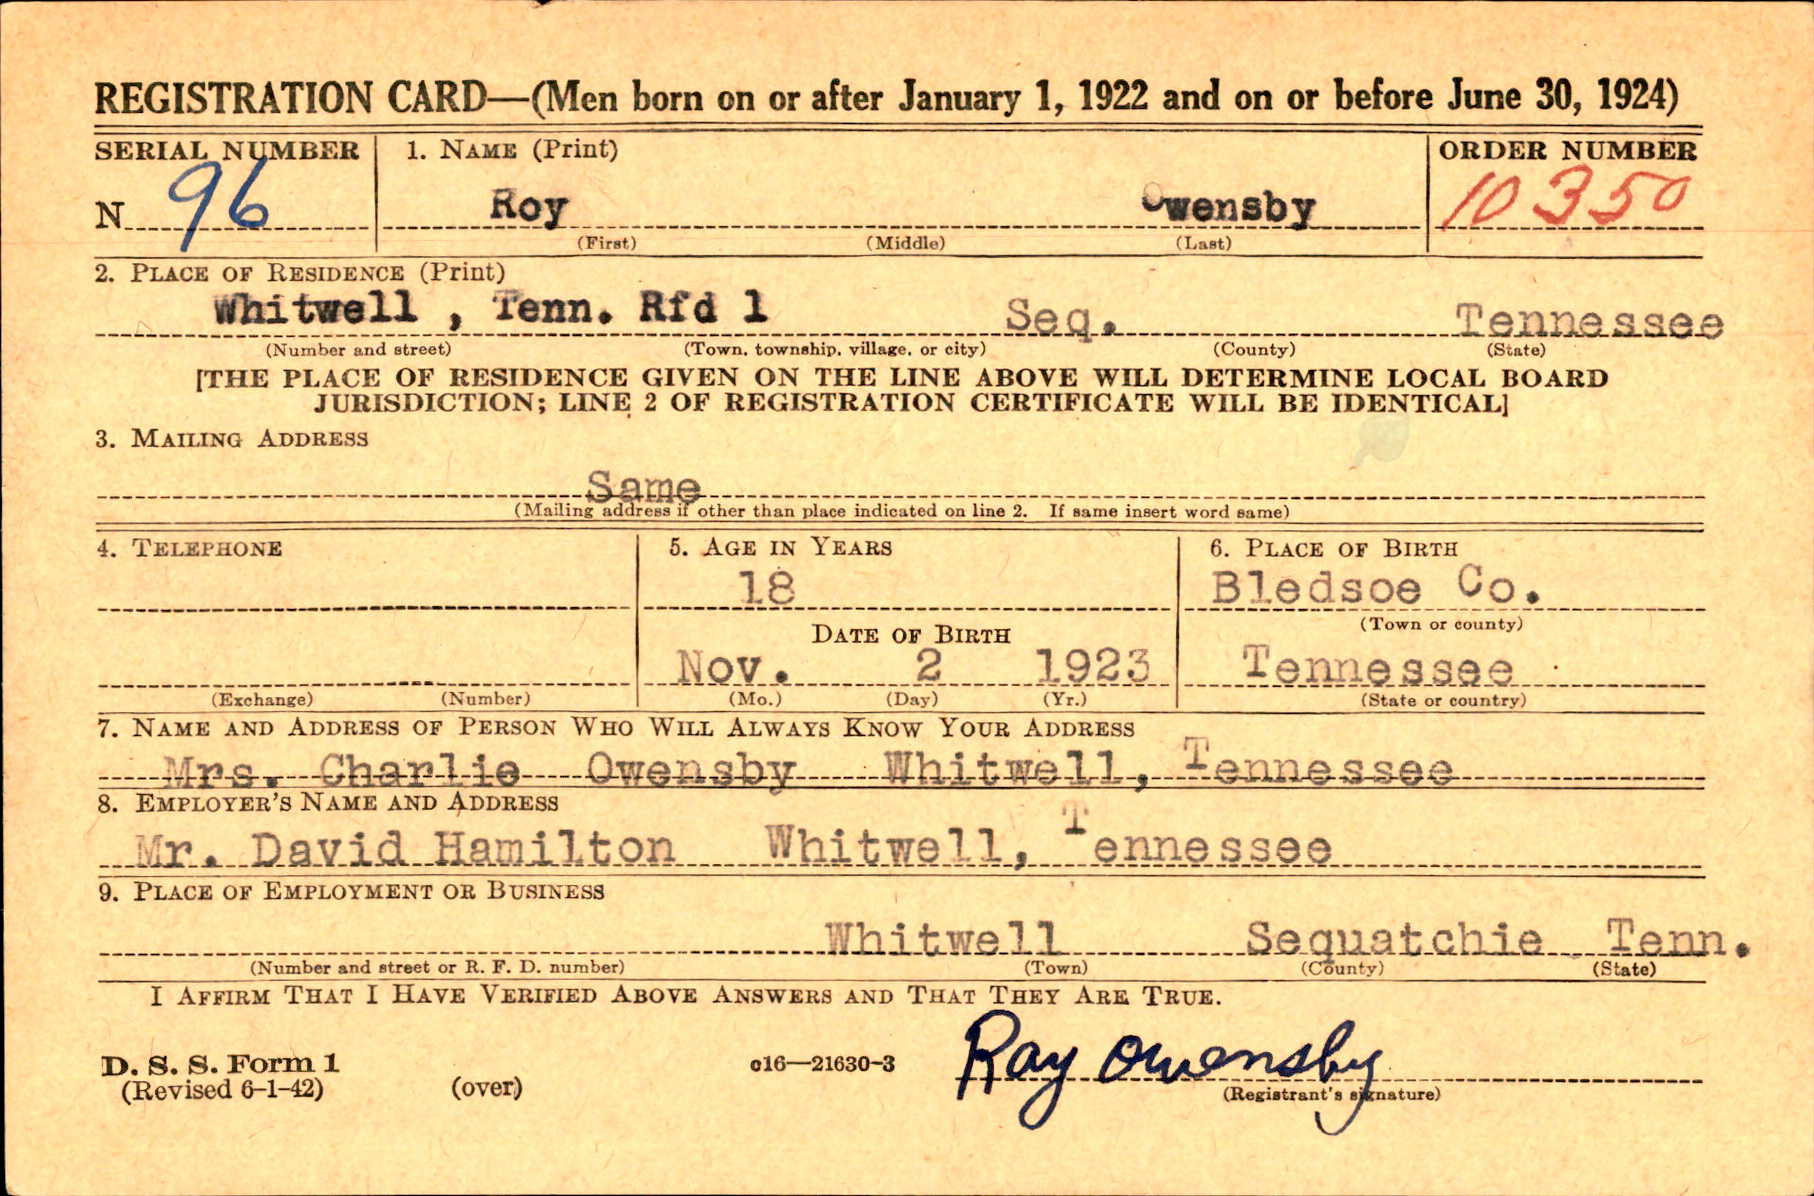 REGISTRATION CARD—(Men born on or after January 1, 1922 and on or before June 30, 1924)
SERIAL NUMBER 1. NAME (Print) ORDER NUMBER
N 96 Roy Owensby 10350
(First) (Middle) (Last)
2. PLACE OF RESIDENCE (Print)
Whitwell , Tenn. Rfd 1 Seq. Tennessee
(Number and street) (Town, township, village, or city) (County) (State)
[THE PLACE OF RESIDENCE GIVEN ON THE LINE ABOVE WILL DETERMINE LOCAL BOARD
JURISDICTION; LINE 2 OF REGISTRATION CERTIFICATE WILL BE IDENTICAL]
3. MAILING ADDRESS
Same
(Mailing address if other than place indicated on line 2. If same insert word same)
4. TELEPHONE 5. AGE IN YEARS 6. PLACE OF BIRTH
18 Bledsoe Co.
(Town or county)
DATE OF BIRTH
Nov. 2 1923 Tennessee
(Exchange) (Number) (Mo.) (Day) (Yr.) (State or country)
7. NAME AND ADDRESS OF PERSON WHO WILL ALWAYS KNOW YOUR ADDRESS
Mrs. Charlie Owensby Whitwell, Tennessee
8. EMPLOYER'S NAME AND ADDRESS
Mr. David Hamilton Whitwell, Tennessee
9. PLACE OF EMPLOYMENT OR BUSINESS
Whitwell Sequatchie Tenn.
(Number and street or R. F. D. number) (Town) (County) (State)
I AFFIRM THAT I HAVE VERIFIED ABOVE ANSWERS AND THAT THEY ARE TRUE.
D. S. S. Form 1 c16—21630-3 Roy Owensby
(Revised 6-1-42) (over) (Registrant's signature)